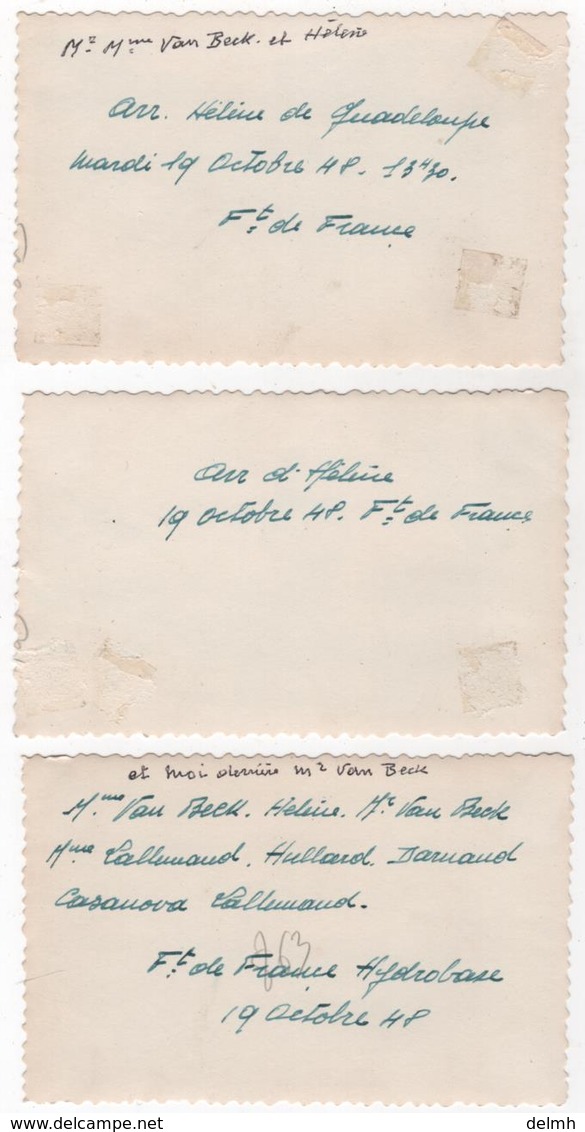 Mr Mme Van Beck. et Hélène
Arr. Hélène de Guadeloupe
Mardi 19 Octobre 48. 13H30.
Ft. de France
Arr d'Hélène
19 Octobre 48. Ft. de France
et moi derrière Mr Van Beck
Mme Van Beck. Hélène. Mr Van Beck
Mme Lallemand. Hullard. Darnaud
Casanova Lallemand.
763
Ft. de France Hydrobase
19 Octobre 48
delmh